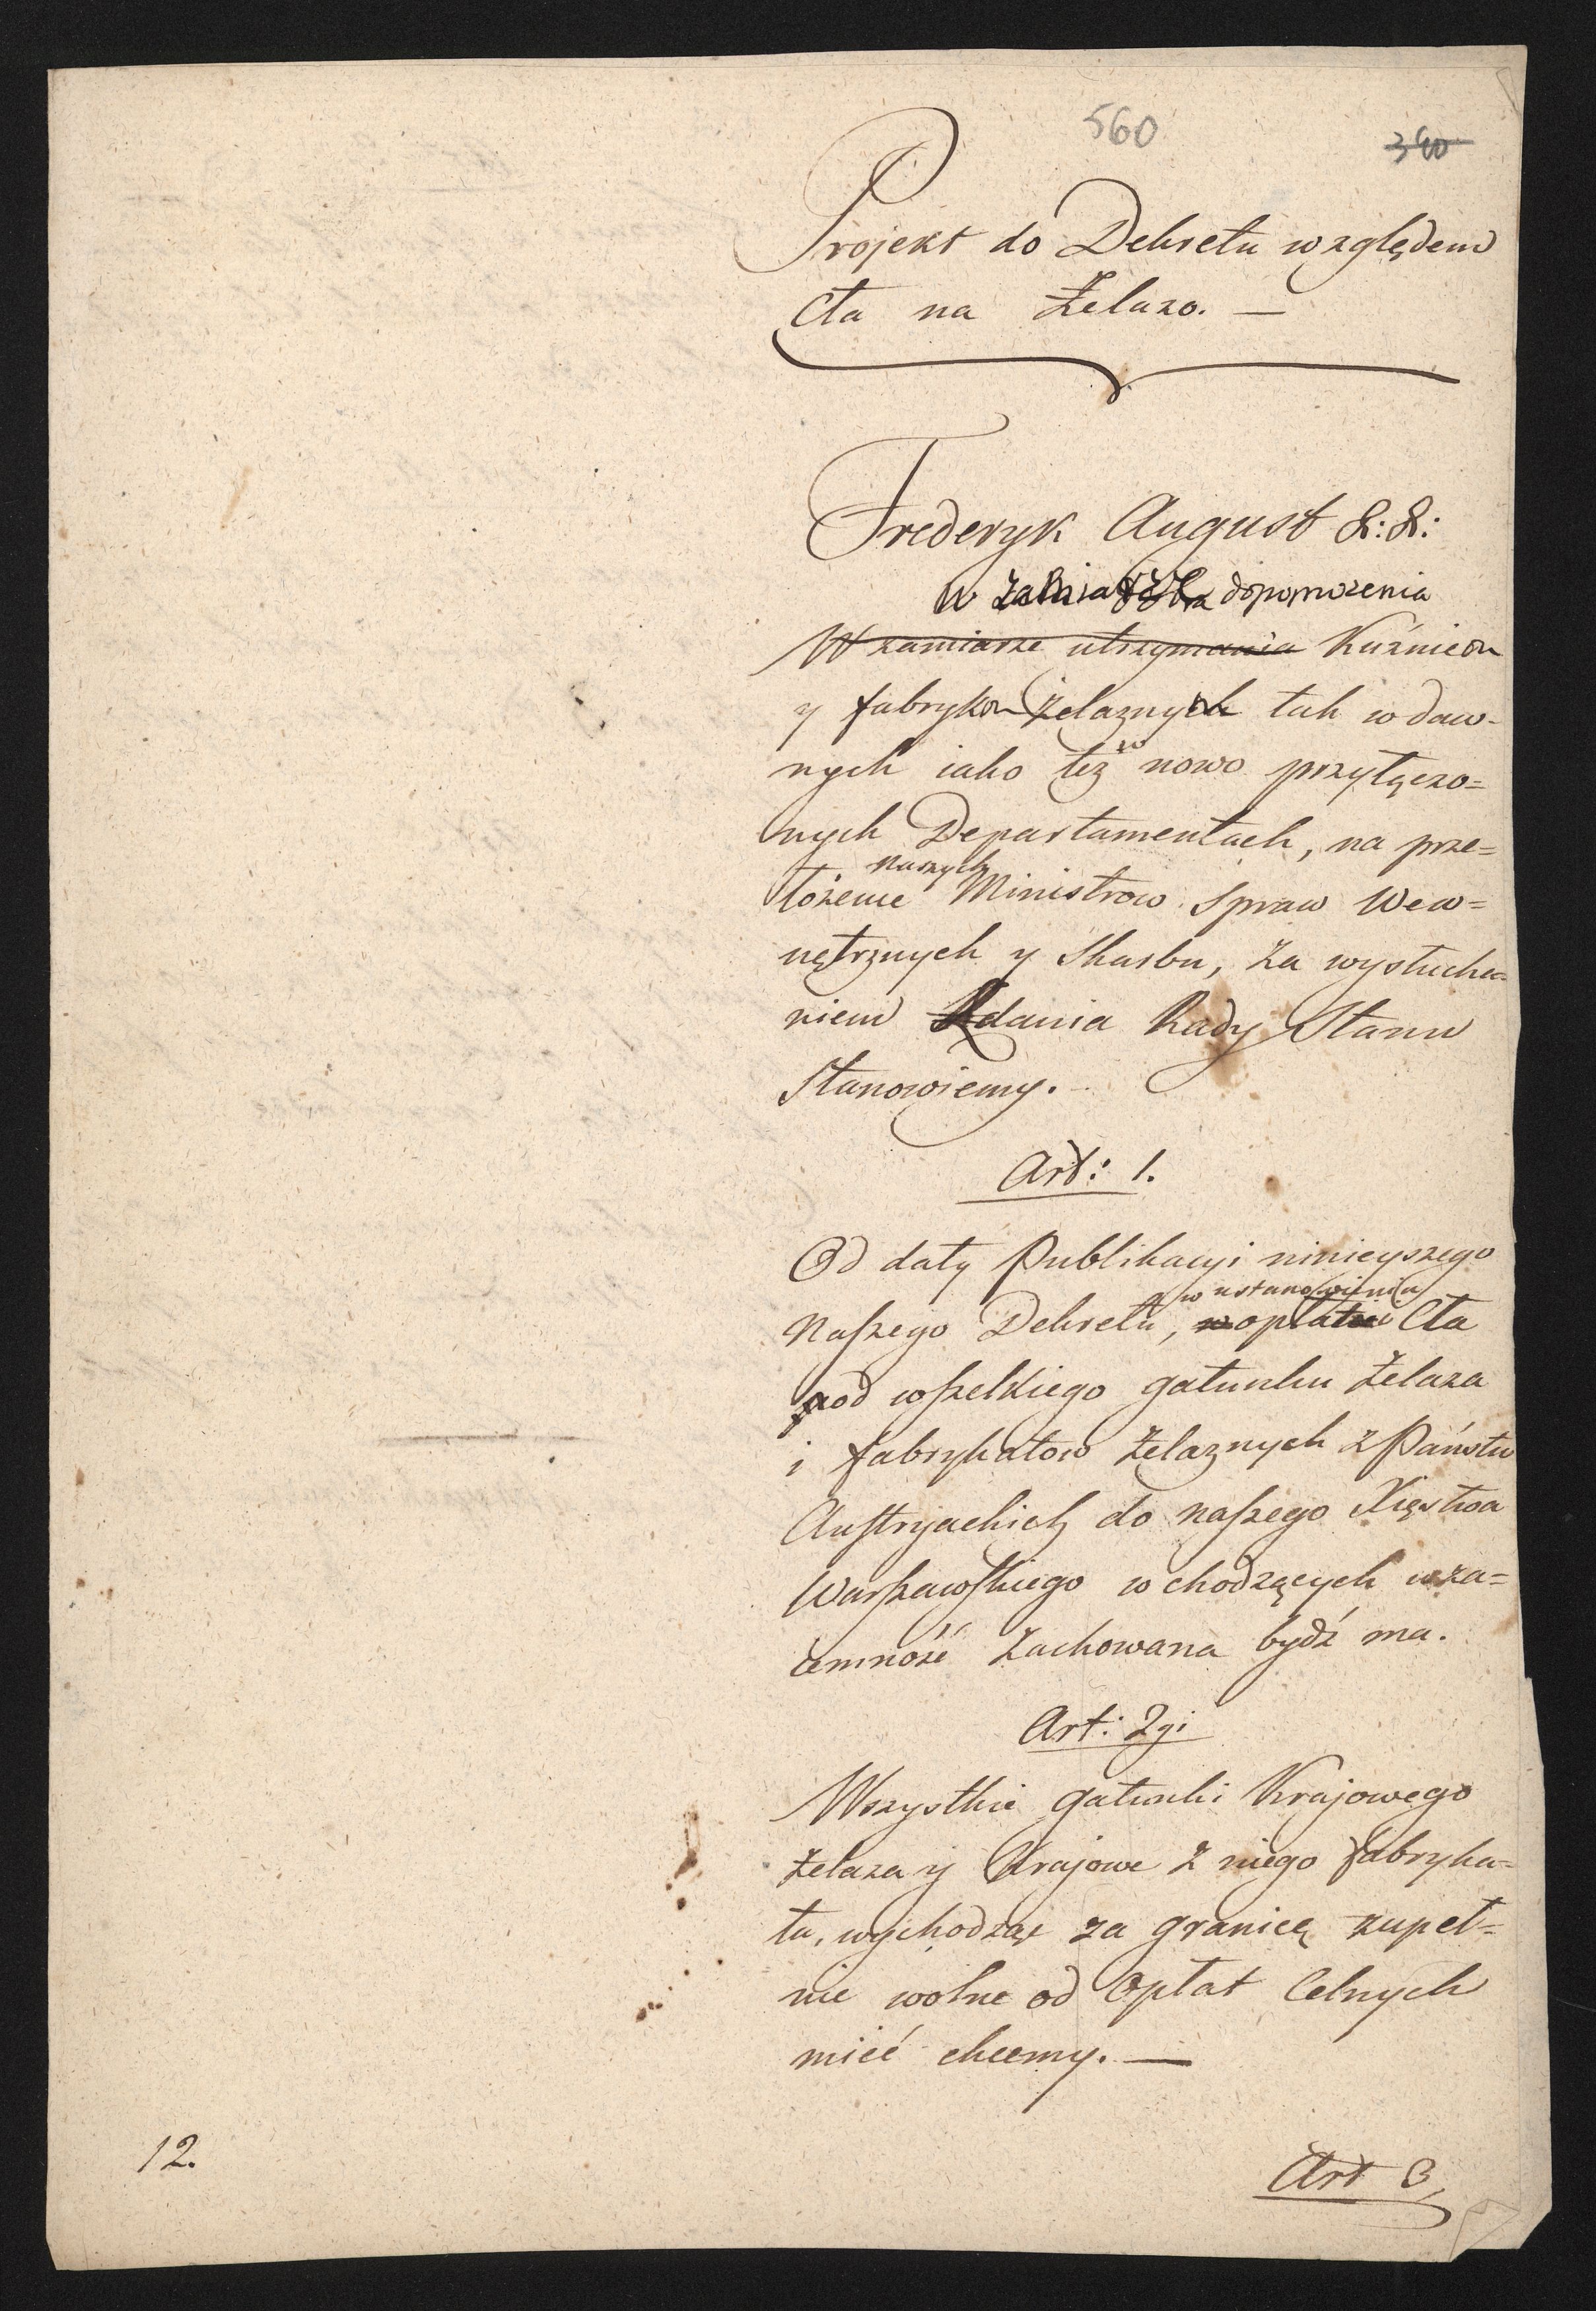 560
340
Projekt do Dekretu względem
Cła na Żelazo. —
Frederyk August &:&:
w dopomożenia
W zamiarze utrzymania Kuźniom
y fabrykom żelaznych tak w daw-
nych iako też w nowo przyłączo=
nych Departamentach, na prze=
naszych
łożenie Ministrow Spraw Wew=
nętrznych y Skarbu, za wysłucha=
niem Zdania Rady Stanu
Stanowiemy.
Art: 1.
Od daty Publikacyi ninieyszego
w ustanowieniu
Naszego Dekretu, w opłacie Cła
od wszelkiego gatunku żelaza
i fabrykatow żelaznych z Państw
Austryackich do naszego Xięstwa
Warszawskiego wchodzących wza=
iemność zachowana bydź ma.
Art: 2gi
Wszystkie gatunki Krajowego
żelaza y Krajowe z niego fabryka=
ta, wychodząc za granicę zupeł=
nie wolne od Opłat Celnych
mieć chcemy. —
12.
Art 3